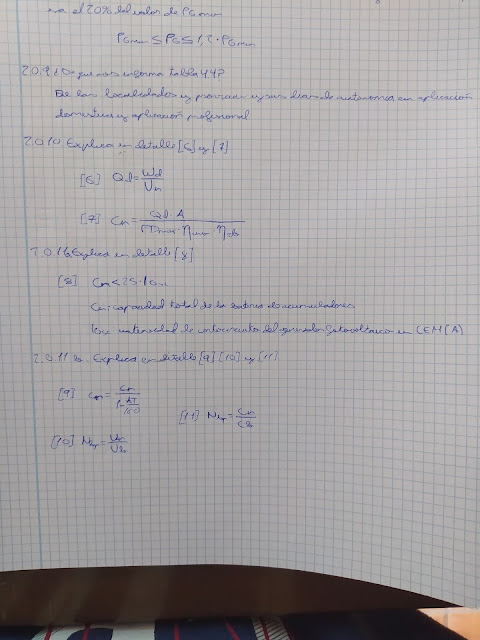 el 20% del valor de PGmin
PGmin ≤ PG ≤ 1,2 · PGmin
2.0.9 ¿De que nos informa tabla 44?
De las localidades y provincias y sus dias de autonomia en aplicación
domestica y aplicación profesional
2.0.10 Explica en detalle [6] y [7]
[6] Qd = Wd / Vn
[7] Cn = Qd · A / PDmax · ηinv · ηrb
2.0.11a Explica en detalle [8]
[8] Cn < 25 · Isc
Cn: capacidad total de la bateria de acumuladores
Isc: intensidad de cortocircuito del generador fotovoltaico en CEM (A)
2.0.11 b. Explica en detalle [9] [10] y [11]
[9] Cn = Cn / 1 - ΔT/160
[11] Nbp = Cn / Cb
[10] Nbs = Vn / Vb